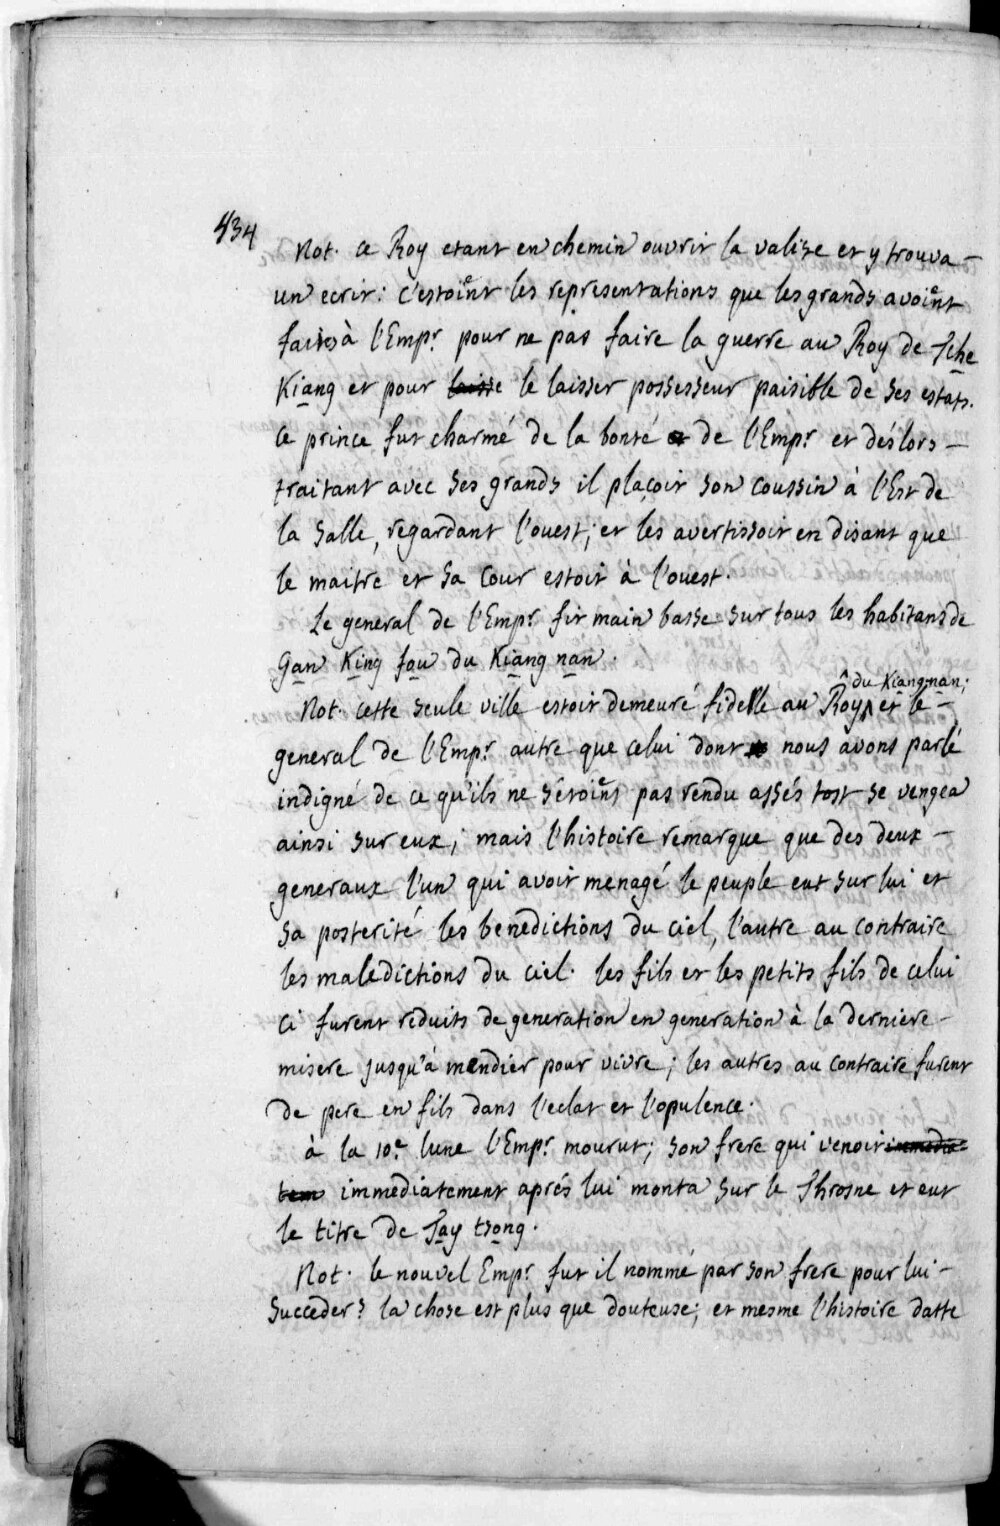 434
Not. ce Roy etant en chemin ouvrir la valise et y trouva -
un ecrit: c'estoient les representations que les grands avoient
faites à l'Empr. pour ne pas faire la guerre au Roy de Tche
Kiang et pour laisse le laisser possesseur paisible de ses estats.
ce prince fut charmé de la bonté de l'Empr. et déslors -
traitant avec ses grands il plaçoit son coussin à l'Est de
la salle, regardant l'ouest; et les avertissoit en disant que
le maitre et sa cour estoit à l'ouest.
Le general de l'Empr. fit main basse sur tous les habitans de
Gan King fou du Kiang nan.
Not. cette seule ville estoit demeuré fidelle au Roy du Kiang nan; et le -
general de l'Empr. autre que celui dont nous avons parlé
indigné de ce qu'ils ne s'étoient pas rendu assés tost se vengea
ainsi sur eux; mais l'histoire remarque que des deux -
generaux l'un qui avoit menagé le peuple eut sur lui et
sa posterité les benedictions du ciel, l'autre au contraire
les maledictions du ciel. les fils et les petits fils de celui
ci furent reduits de generation en generation à la derniere -
misere jusqu'à mendier pour vivre; les autres au contraire furent
de pere en fils dans l'eclat et l'opulence.
à la 10e. lune l'Empr. mourut; son frere qui venoit immedia=
tem immediatement aprés lui monta sur le Throsne et eut
le titre de Tay tsong.
Not. le nouvel Empr. fut il nommé par son frere pour lui -
succeder? la chose est plus que douteuse; et mesme l'histoire datte